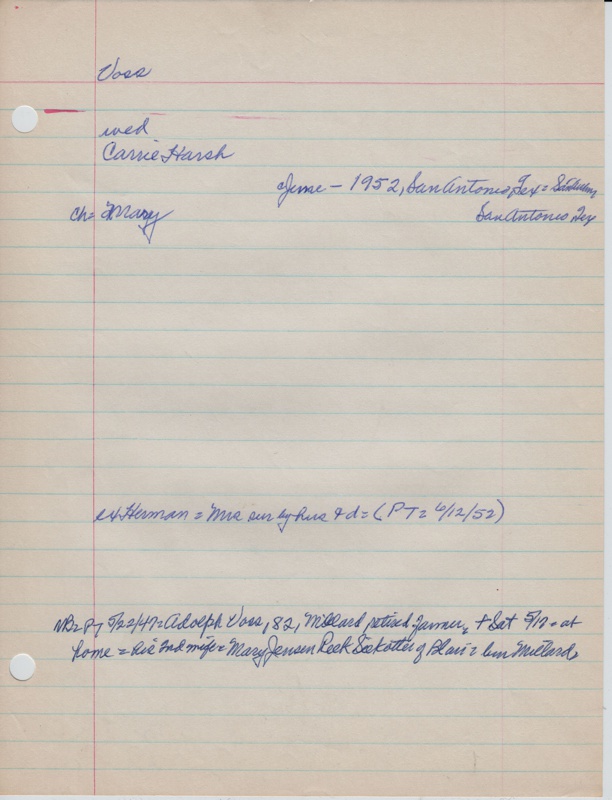 Voss
wed
Carrie Harsh
June - 1952, San Antonio, Tex =
ch= Mary
San Antonio Tex
ex Herman = Mrs sur by hus & d = (PT = 6/12/52)
NB= PT 5/22/47= Adolph Voss, 82, Millard retired farmer, + Sat 5/17 - at
home = his 2nd wife = Mary Jensen of Blair = bur Millard.